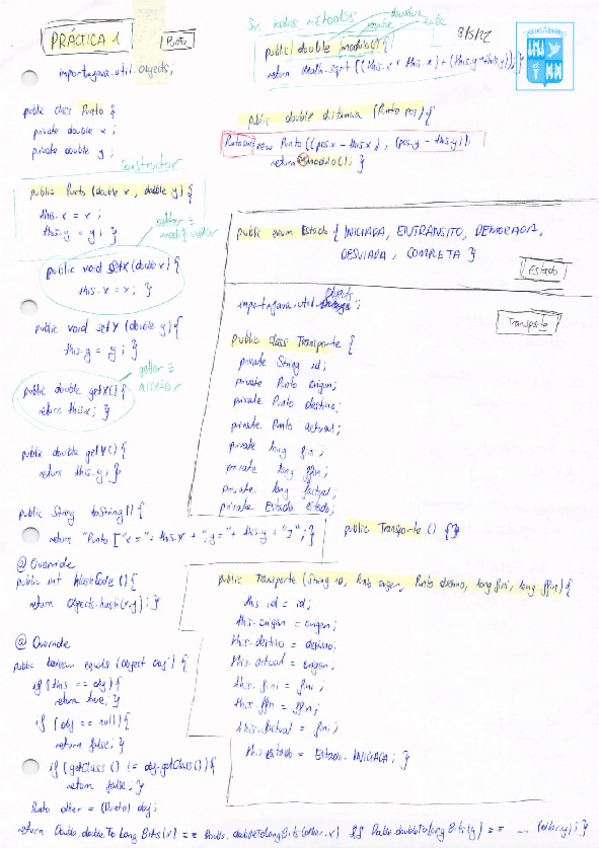 PRÁCTICA 1
Punto
import java.util.Objects;
public class Punto {
private double x ;
private double y ;
constructor
public Punto (double x , double y) {
this.x = x ;
this.y = y ; }
setter ≡
modificador
public void setX (double x) {
this.x = x ; }
public void setY (double y) {
this.y = y ; }
getter ≡
accesor
public double getX() {
return this.x ; }
public double getY() {
return this.y ; }
public String toString() {
return "Punto [ "x = "+ this.x + ", y = "+ this.y + "]" ; }
@ Override
public int hashCode () {
return Objects.hash(x,y) ; }
@ Override
public boolean equals (Object obj) {
if (this == obj) {
return true; }
if (obj == null) {
return false; }
if (getClass () != obj.getClass()) {
return false; }
Punto other = (Punto) obj;
return Double.doubleToLongBits(x) == Double.doubleToLongBits(other.x) && Double.doubleToLongBits(y) == ... (other.y) ; }
métodos
8/5/22
public double modulo() {
return Math.sqrt ((this.x * this.x) + (this.y * this.y)); }
public double distancia (Punto pos) {
new Punto ((pos.x - this.x) , (pos.y - this.y));
return modulo() ; }
public enum Estado { INICIADA, ENTRANSITO, DEMORADA,
DESVIADA , COMPLETA }
Estado
import java.util.Objects ;
Transporte
public class Transporte {
private String id;
private Punto origen;
private Punto destino;
private Punto actual;
private long fini;
private long ffin;
private long factual;
private Estado estado;
public Transporte () {}
public Transporte (String id, Punto origen, Punto destino, long fini, long ffin) {
this.id = id;
this.origen = origen;
this.destino = destino;
this.actual = origen;
this.fini = fini;
this.ffin = ffin;
this.factual = fini;
this.estado = Estado.INICIADA ; }